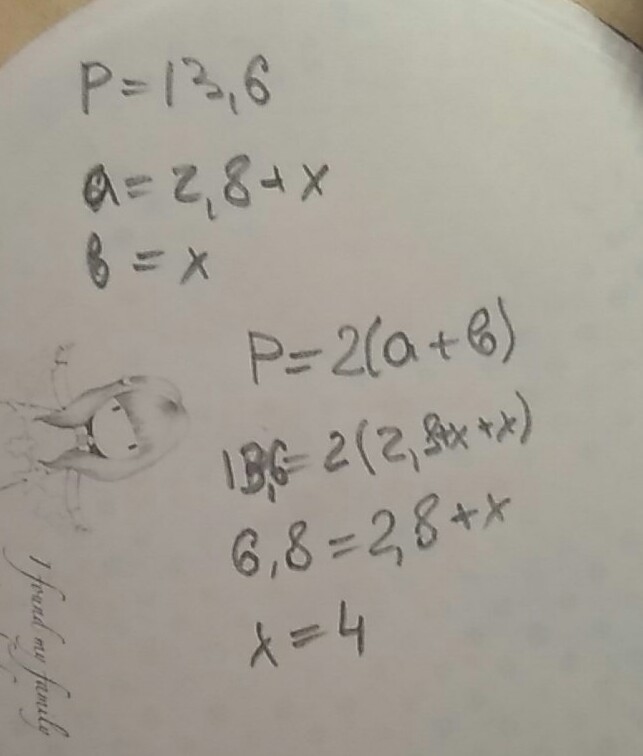 P=13,6
a=2,8+x
в=x
P=2(a+в)
13,6=2(2,8+x+x)
6,8=2,8+x
x=4
I found my family